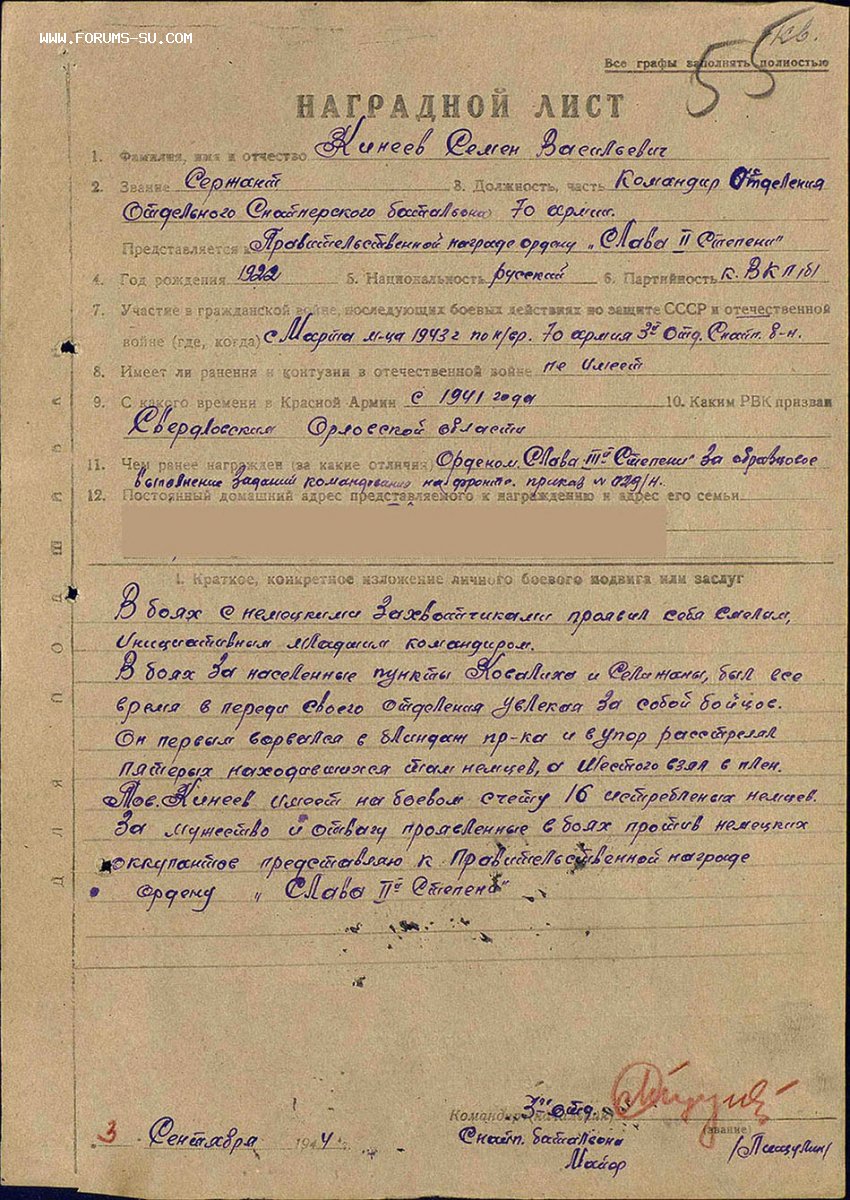 WWW.FORUMS-SU.COM
55 кв.
Все графы заполнять полностью
НАГРАДНОЙ ЛИСТ
1. Фамилия, имя и отчество Кинеев Семен Васильевич
2. Звание Сержант 3. Должность, часть Командир Отделения
Отдельного Снайперского батальона 70 армии.
Представляется к Правительственной награде ордену „Слава II Степени"
4. Год рождения 1922 5. Национальность русский 6. Партийность к. ВКП/б/
7. Участие в гражданской войне, последующих боевых действиях по защите СССР и отечественной
войне (где, когда) с Марта м-ца 1943 г по н/вр. 70 армия 3й Отд. Снайп. б-н.
8. Имеет ли ранения и контузии в отечественной войне не имеет
9. С какого времени в Красной Армии с 1941 года 10. Каким РВК призван
Свердловским Орловской области
11. Чем ранее награжден (за какие отличия) Орденом „Слава IIIй Степени" за образцовое
выполнение заданий командования на фронте. приказ № 029/н.
12. Постоянный домашний адрес представляемого к награждению и адрес его семьи
I. Краткое, конкретное изложение личного боевого подвига или заслуг
В боях с немецкими захватчиками проявил себя смелым,
инициативным младшим командиром.
В боях за населенные пункты Ковалиха и Селижаны, был все
время в переди своего отделения увлекая за собой бойцов.
Он первым ворвался в блиндаж пр-ка и в упор расстрелял
пятерых находавшихся там немцев, а шестого взял в плен.
Тов. Кинеев имеет на боевом счету 16 истребленых немцев.
За мужество и отвагу проявленные в боях против немецких
оккупантов представляю к Правительственной награде
ордену „Слава IIй Степени"
Командир (начальник) 3й отд.
(звание)
3 Сентября 1944 г.
Снайп. батальона
Майор
для подшивания